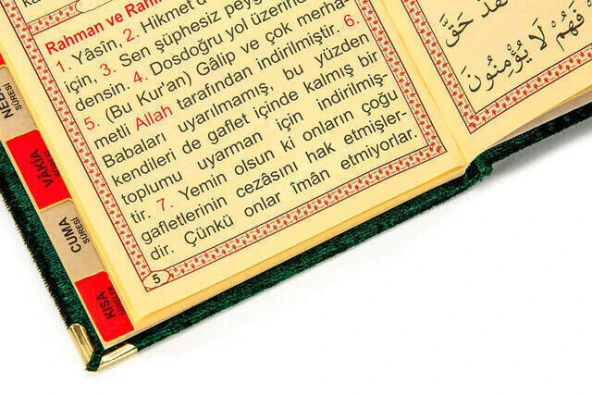 Rahman ve Rahi
1. Yâsîn, 2. Hikmet
için, 3. Sen şüphesiz peyg
densin. 4. Dosdoğru yol üzerind
5. (Bu Kur'an) Gâlip ve çok merha-
metli Allah tarafından indirilmiştir. 6.
Babaları uyarılmamış, bu yüzden
kendileri de gaflet içinde kalmış bir
toplumu uyarman için indirilmiş-
tir. 7. Yemin olsun ki onların çoğu
gafletlerinin cezâsını hak etmişler-
dir. Çünkü onlar îmân etmiyorlar.
5
حَقَّ
فَهُمْ لَا يُؤْمِنُونَ
SÛRESİ
VÂKIA
CUMA
SÛRESİ
KISA
SÛRELER